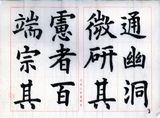 通幽洞
微研其
慮者百
端宗其